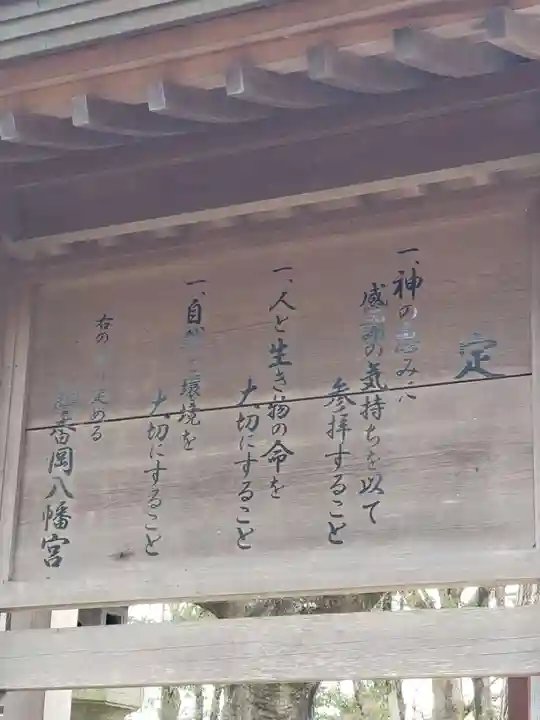 定
一、神の恵みに
感謝の気持ちを以て
参拝すること
一、人と生き物の命を
大切にすること
一、自然と環境を
大切にすること
右の 定める
番岡八幡宮